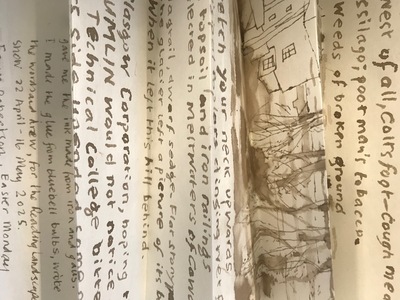 weet of all, Colts foot-cough med
ssilago, poor man's tobacco
weeds of broken ground
etch your neck upwards
topsoil, and iron railings
ered in meltwaters of Cowa
dwarf sedge. For stamp
e glacier left a picture of its b
hen it left this hill behind.
lasgow Corporation, hoping t
UMLIN would not notice
Technical College bitte
gave me the ink made from iron and galls.
I made the glue from bluebell bulbs, wrote
the words and drew for the Reading Landscape
show 22 April - 16 May 2025.
Robertson, Easter Monday